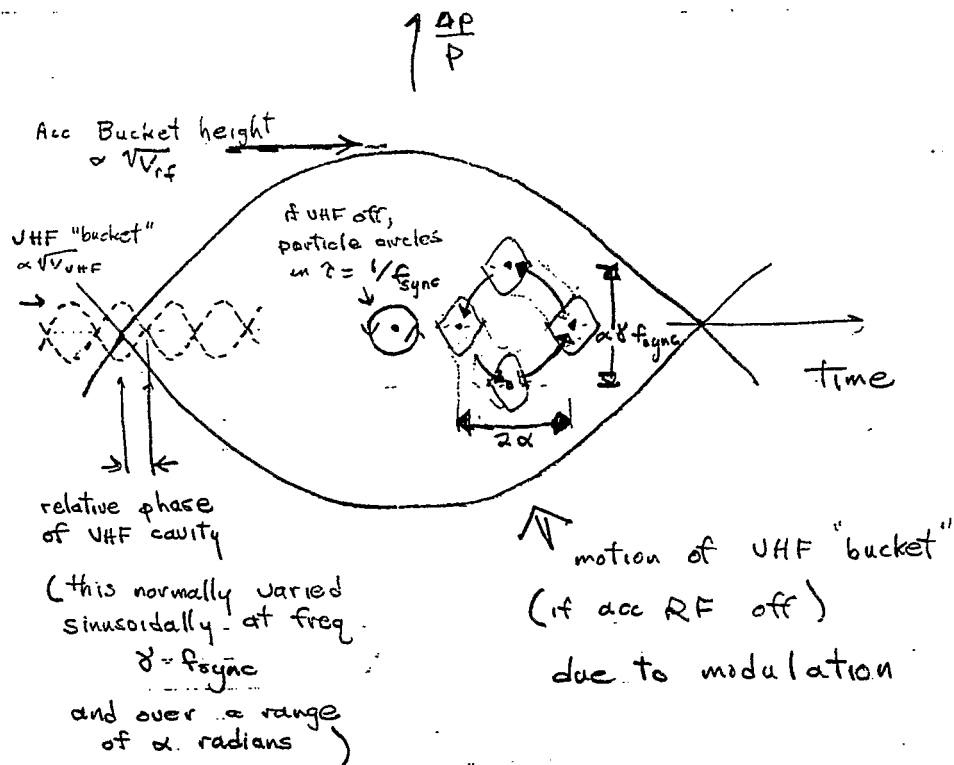 Δp
p
Acc Bucket height
∝ √V_rf
UHF "bucket"
∝ √V_UHF
if UHF off,
particle circles
in τ = 1/f_sync
α γ f_sync
Time
2α
relative phase
of UHF cavity
(this normally varied
sinusoidally at freq.
γ = f_sync
and over a range
of α radians)
motion of UHF "bucket"
(if acc RF off)
due to modulation